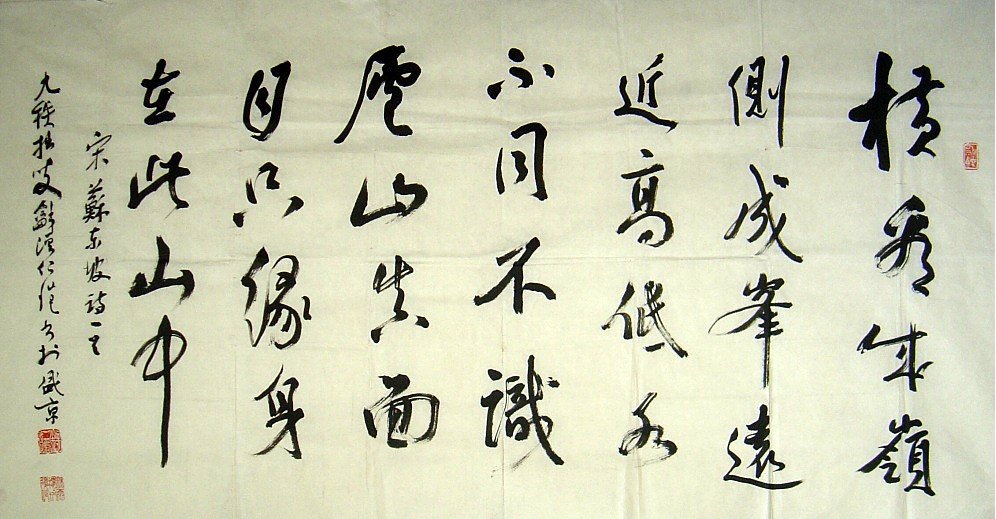 橫看成嶺
側成峯遠
近高低各
不同不識
廬山真面
目只緣身
在此山中
宋蘇東坡詩一首
九秩拙叟 仁 书於盛京